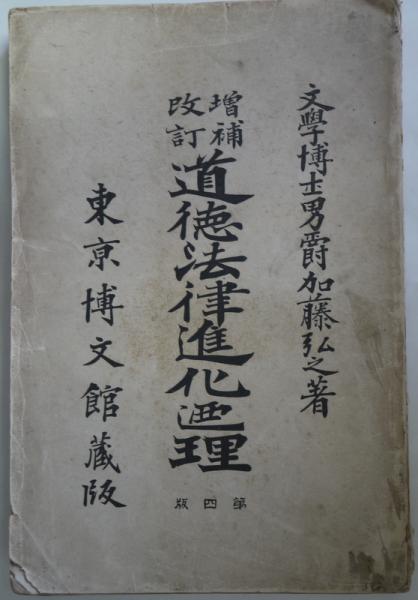 文學博士男爵加藤弘之著
增補
改訂
道德法律進化之理
第四版
東京博文館藏版